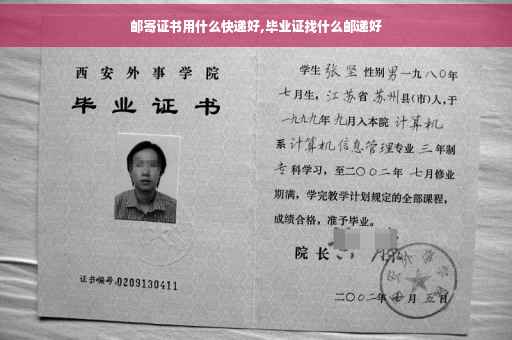 邮寄证书用什么快递好,毕业证找什么邮递好
西安外事学院
毕业证书
证书编号:0209130411
学生 张坚 性别男一九八〇年
七月生，江苏省苏州县(市)人,于
一九九九年九月入本院 计算机
系计算机信息管理专业 三 年制
专科学习，至二〇〇二年 七月修业
期满，学完教学计划规定的全部课程，
成绩合格，准予毕业。
院长
二〇〇二年 月五日